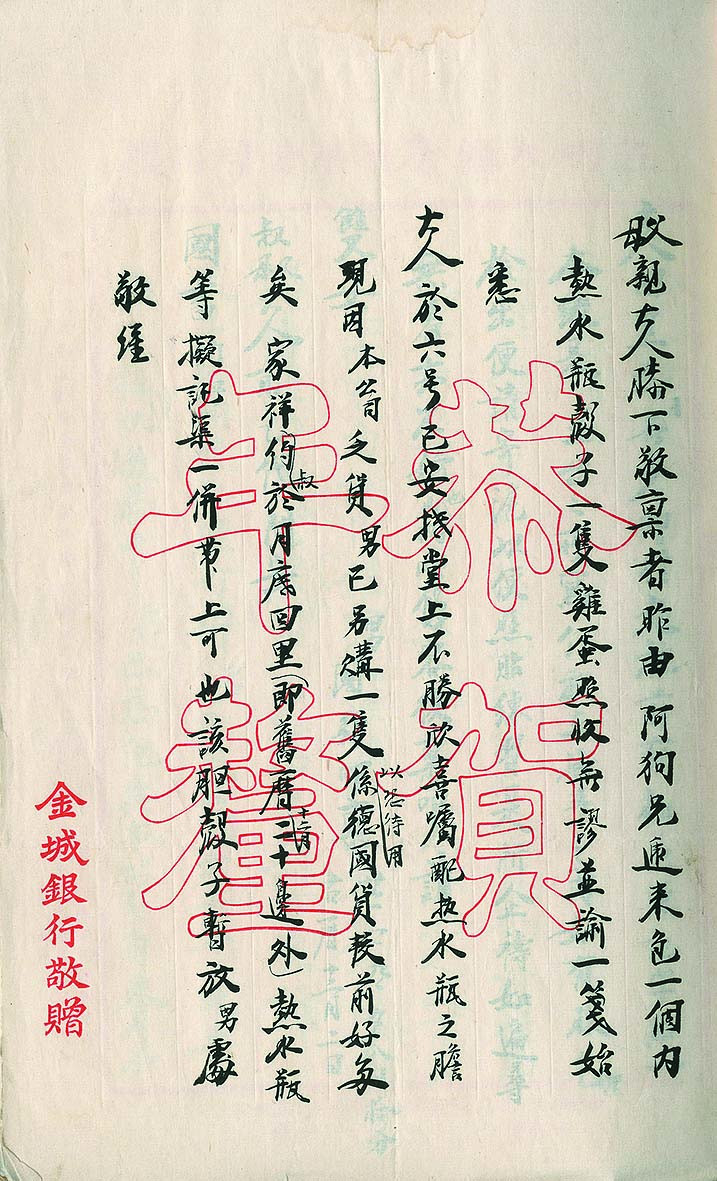 母親大人膝下敬稟者昨由 阿狗兄遞来包一個内
熱水瓶殼子一隻雞蛋照收無謬並諭一箋始
悉
大人於六号已安抵堂上不勝欣喜囑配热水瓶之膽
現因本公司乏貨男已另購一隻以恐待用係德國貨較前好多
矣 家祥叔於月底回里(即舊曆十二月二十邊外)熱水瓶
等擬託渠一併帶上可也該胆殼子暫放男處
敬經
恭賀
年釐
金城銀行敬贈